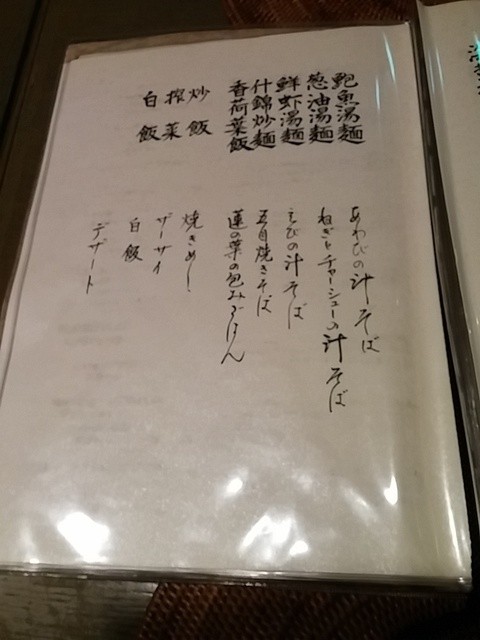 鮑魚湯麵
葱油湯麵
鮮虾湯麵
什錦炒麵
香荷葉飯
炒飯
搾菜
白飯
あわびの汁そば
ねぎとチャーシューの汁そば
えびの汁そば
五目焼きそば
蓮の葉の包みごはん
焼きめし
ザーサイ
白飯
デザート